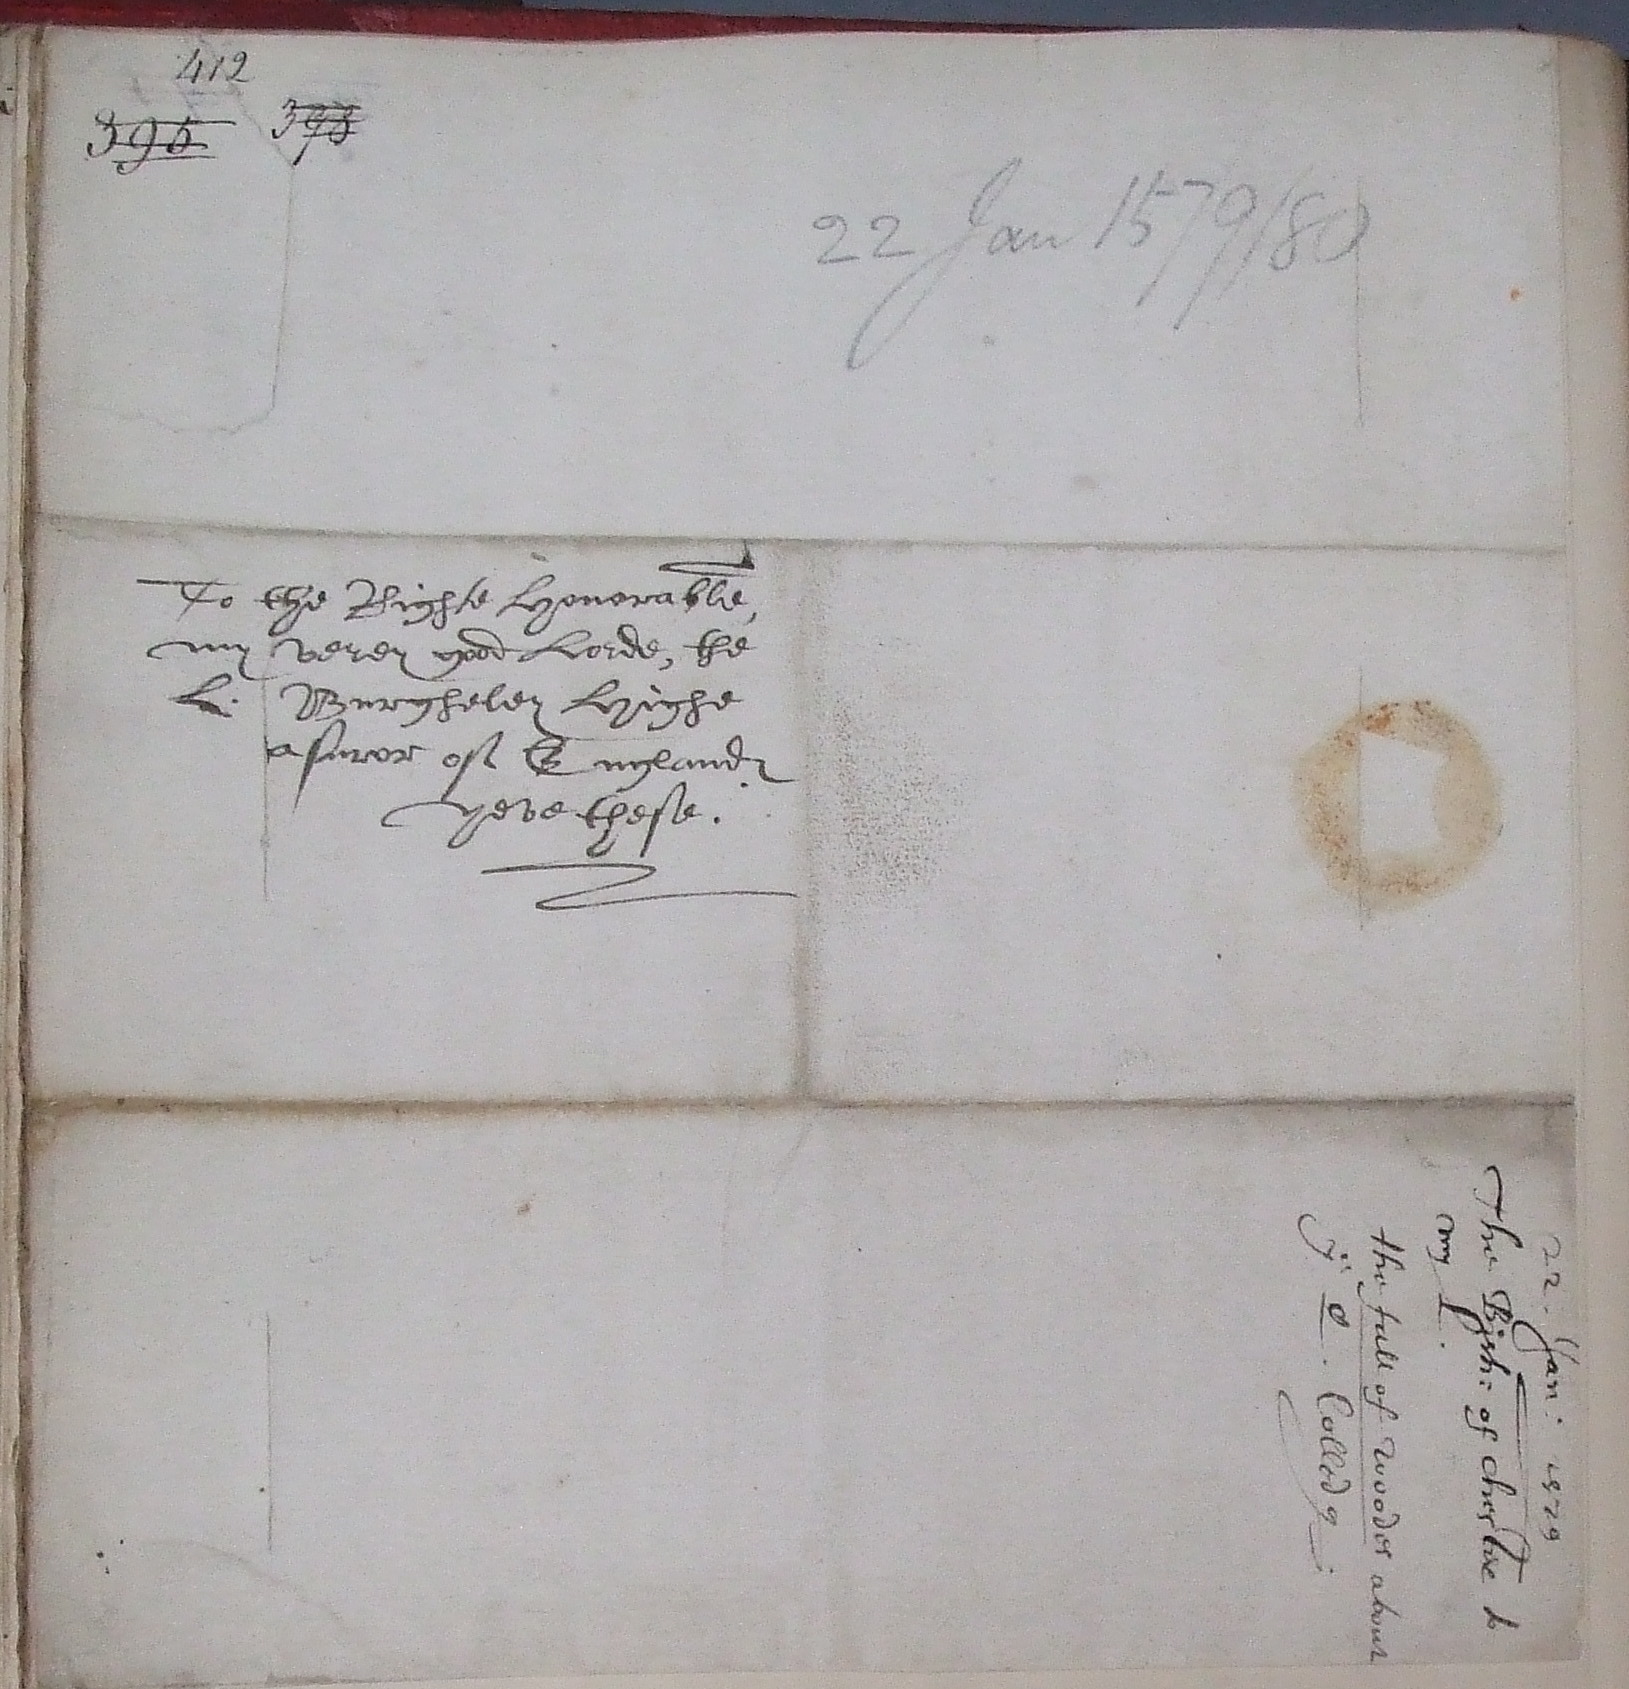 412
395 393
22 Jan 1579/80
To the Righte Honorable,
my verey good Lorde, the
L. Burgheley Highe
asuror off England
yeve these.
22. Jan: 1579
The Bish: of chester to
my L.
the fall of woodes about
Colledg: